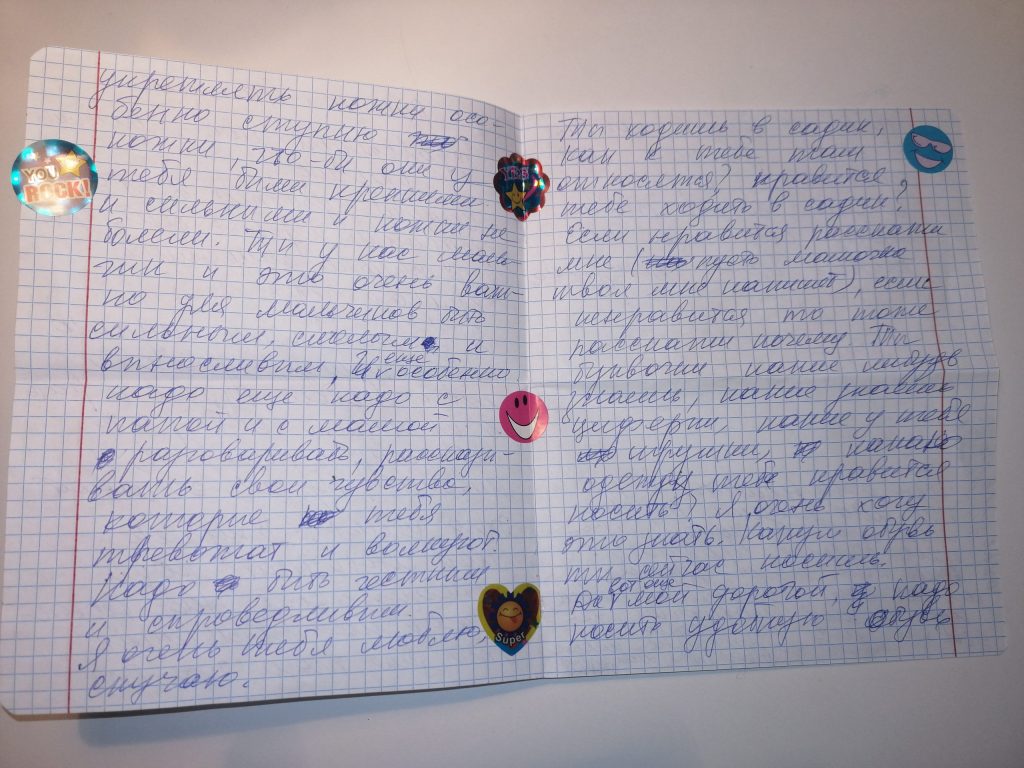 укреплять ножки осо-
бенно ступню
ножки, что-бы они у
тебя были крепкими
и сильными и ножки не
болели. Ты у нас маль-
чик и это очень важ-
но для мальчиков быть
сильным, смелым, и
выносливым, И еще особенно
надо еще надо с
папой и с мамой
разговаривать, рассказы-
вать свои чувства,
которые тебя
тревожат и волнуют.
Надо быть честным
и справедливым.
Я очень тебя люблю
скучаю.
Ты ходишь в садик,
как к тебе там
относятся? нравится
тебе ходить в садик?
Если нравится расскажи
мне (пусть мамочка
твоя мне напишет), если
ненравится то тоже
расскажи почему. Ты
буквочки какие нибудь
знаешь, какие знаешь
цифры, какие у тебя
игрушки, какую
одежду тебе нравится
носить? Я очень хочу
это знать. Какую обувь
ты сейчас носишь.
Да мой дорогой, надо
носить удобную обувь
YOU
ROCK!
YES
Super